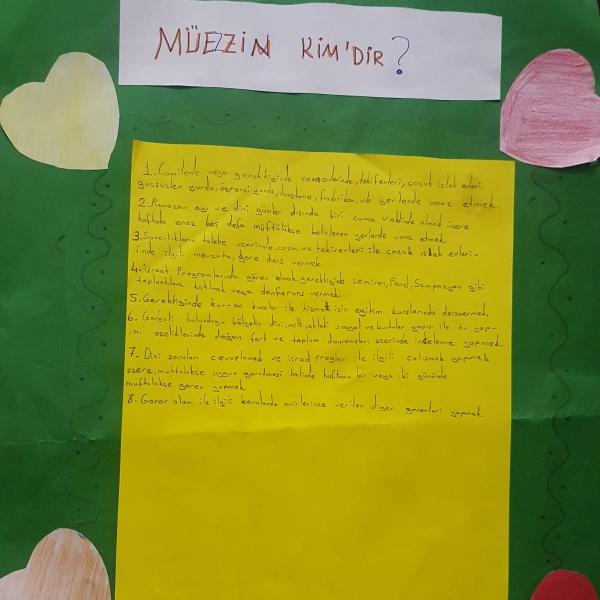 MÜEZZİN KİM'DİR?
1. Camilerde veya gerektiğinde cezaevlerinde, tekifevleri, çocuk islah evleri,
güçsüzler yurdu, öğrenci yurdu, hastane, fabrika, vb yerlerde vaaz etmek.
2. Ramazan ayı ve dini günler dışında biri cuma vaktinde olmak üzere
haftada enaz beş defa müftülükçe belirlenen yerlerde vaaz etmek.
3. Savcılıkların talebe üzerinde, ceza ve tekivevleri ile çocuk ıslah evleri-
inde ilgili mevzuta, göre ders vermek.
4. israat Programlarında görev almak, gerektiğinde semiren, Panel, Sampozyon gibi
toplantılara katılmak veya donferons vermek.
5. Gerektiğinde kur-an kurslar ile hizmet için eğitim kurslarında dersvermek.
6. Görevli bulunduğu bölgeki dini, milli, ahlaki sosyal ve kurtaler yapısı ile bu yap-
ımı özeliklerinde doğan fert ve toplum davranışları üzerinde inceleme yapmak.
7. Dini soruları cevaplamak ve israd progları ile ilgili çalışmak yapmak
üzere, muhtalıkçe uygun görülmesi halinde haftanın bir veya iki gününde
muftulukçe görev yapmak.
8. Görev alanı ile ilgili konularda amirlerince verilen diğer görevleri yapmak